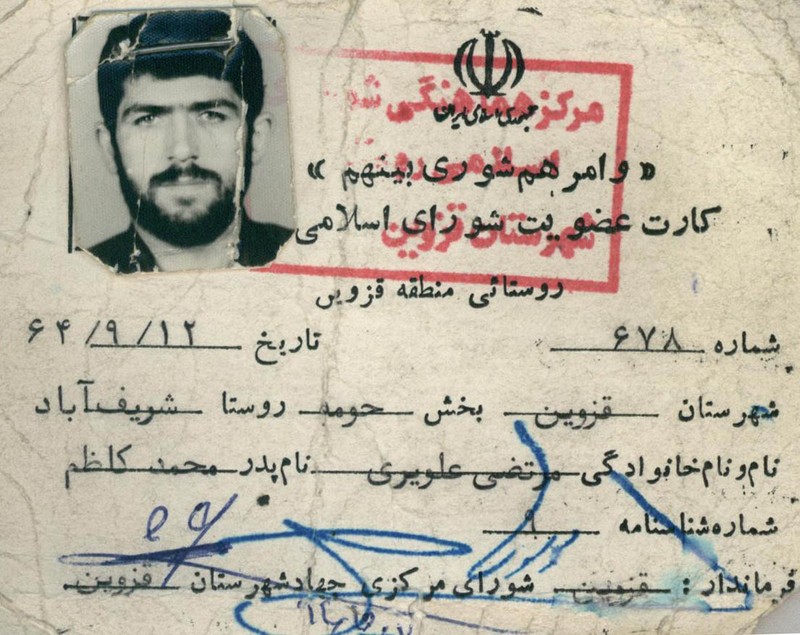 جمهوری اسلامی ایران
مرکز هماهنگی
« و امرهم شوری بینهم »
کارت عضویت شورای اسلامی
شهرستان قزوین
روستائی منطقه قزوین
شماره ۶۷۸ تاریخ ۶۴/۹/۱۲
شهرستان قزوین بخش حومه روستا شریف‌آباد
نام و نام خانوادگی مرتضی علویری نام پدر محمد کاظم
شماره شناسنامه ۹
فرماندار : قزوین شورای مرکزی جهاد شهرستان قزوین